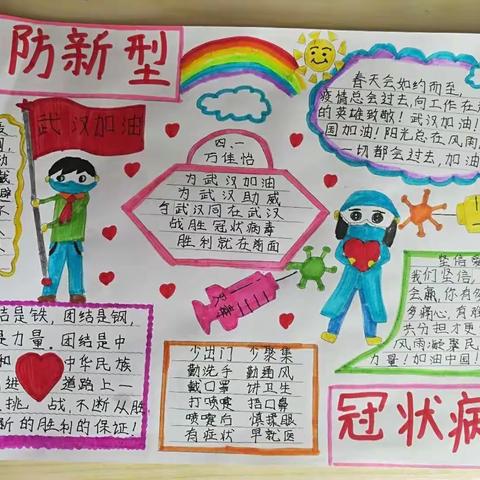 防新型
武汉加油
春天会如约而至,
疫情总会过去,向工作在
的英雄致敬!武汉加油!
国加油!阳光总在风雨
一切都会过去,加油
四、一
万佳怡
为武汉加油
为武汉助威
与武汉同在武汉
战胜冠状病毒
胜利就在前面
坚信
我们坚信,
去赢,你有多
多痛心,有
共分担才更
风雨凝聚民
力量!加油中国!
结是铁,团结是钢,
是力量.团结是中
和 中华民族
进 道路上一
挑 战,不断从胜
新的胜利的保证!
少出门 少聚集
勤洗手 勤通风
戴口罩 讲卫生
打喷嚏 捂口鼻
喷嚏后 慎揉眼
有症状 早就医
冠状病